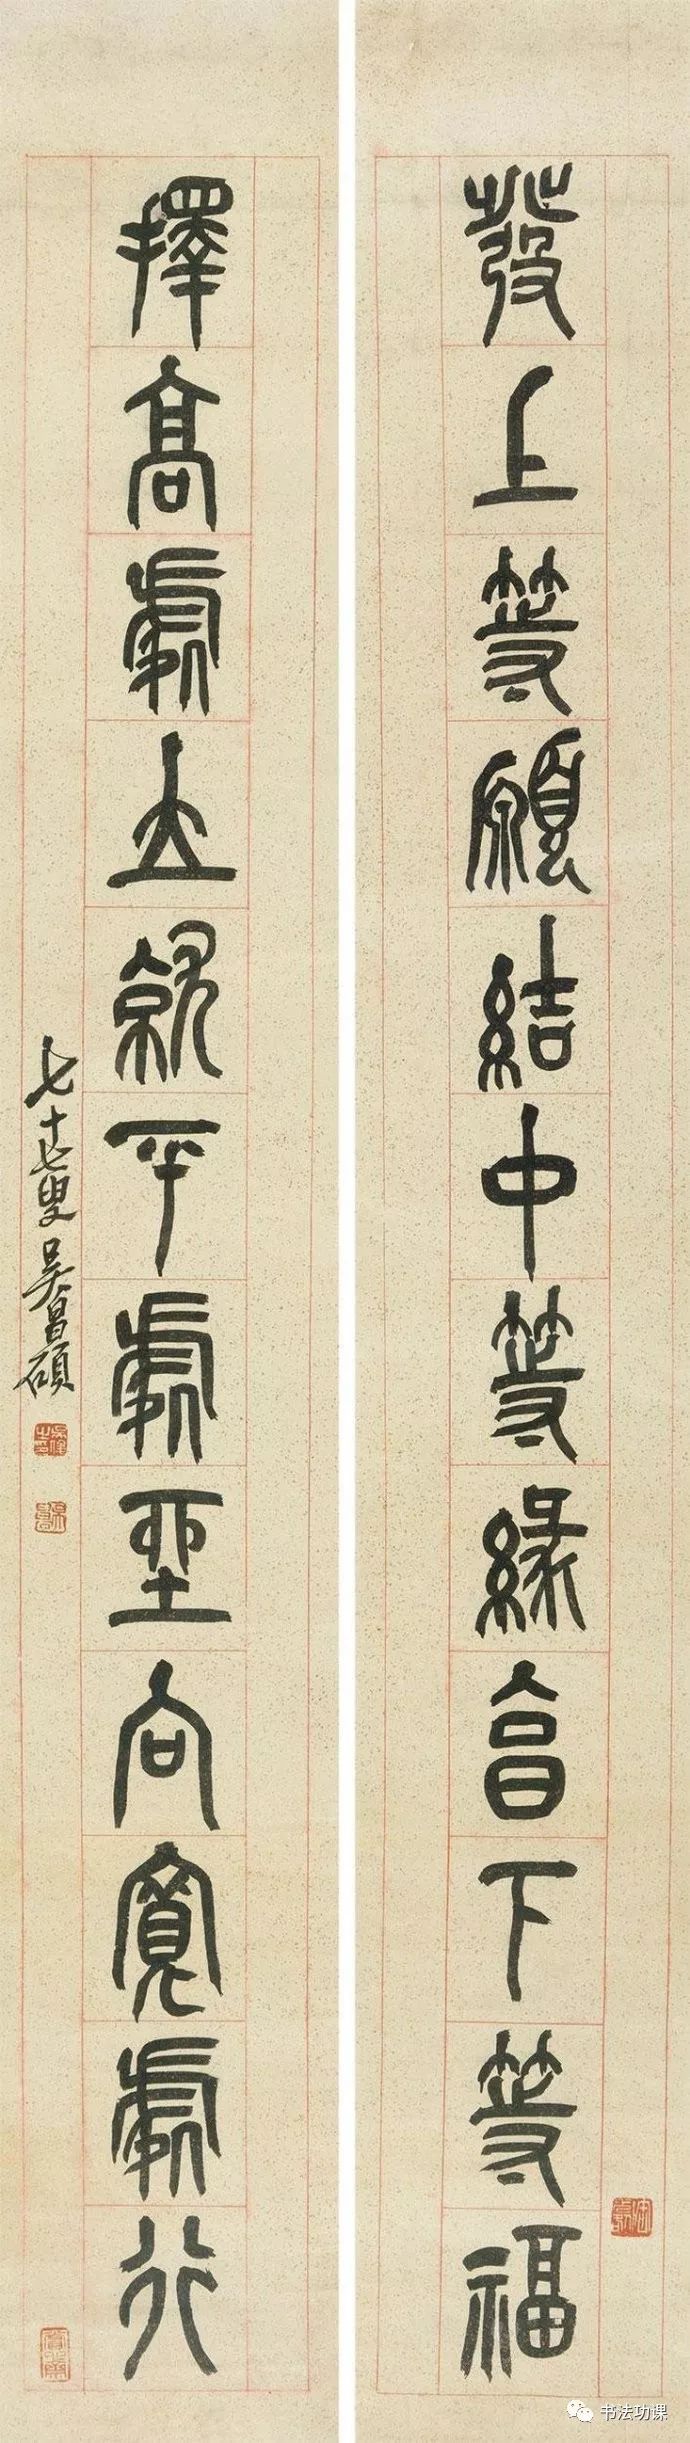 發上等願結中等緣享下等福
擇高處立就平處坐向寬處行
七十七叟吳昌碩
书法功课